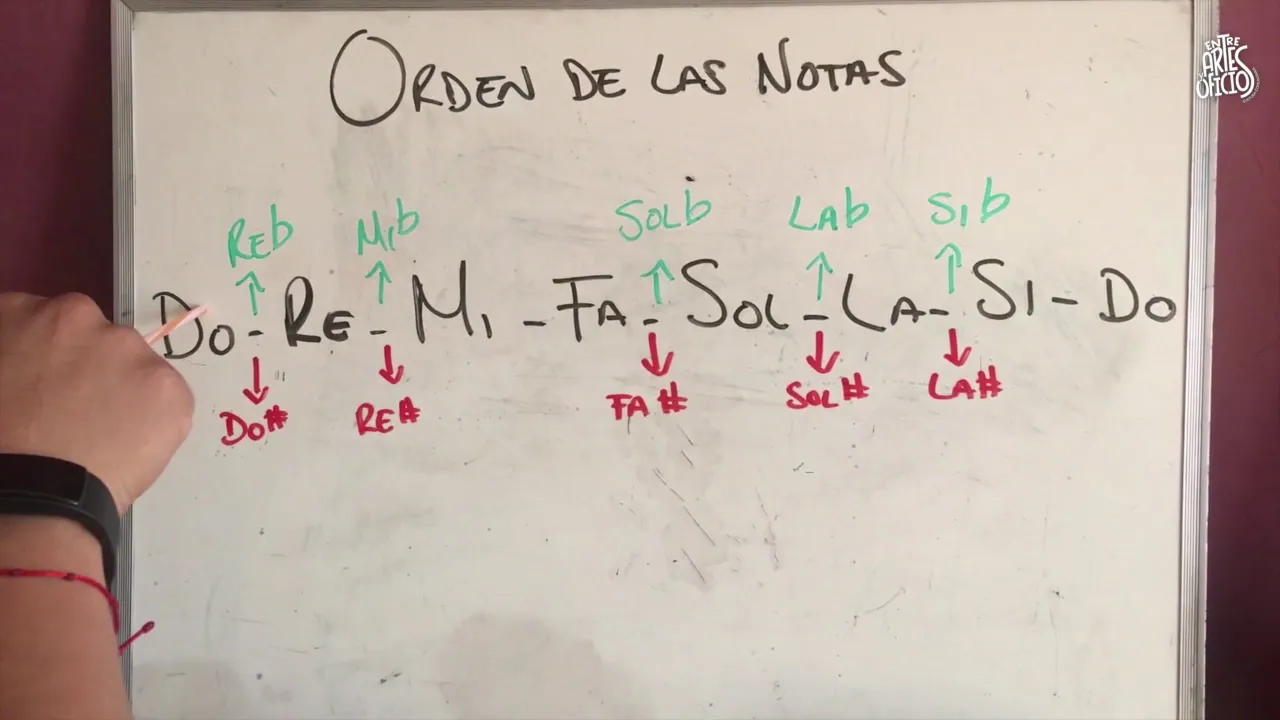 ORDEN DE LAS NOTAS
ENTRE
ARTES
OFICIOS
REb MIb SOLb LAb SIb
DO - RE - MI - FA - SOL - LA - SI - DO
DO# RE# FA# SOL# LA#